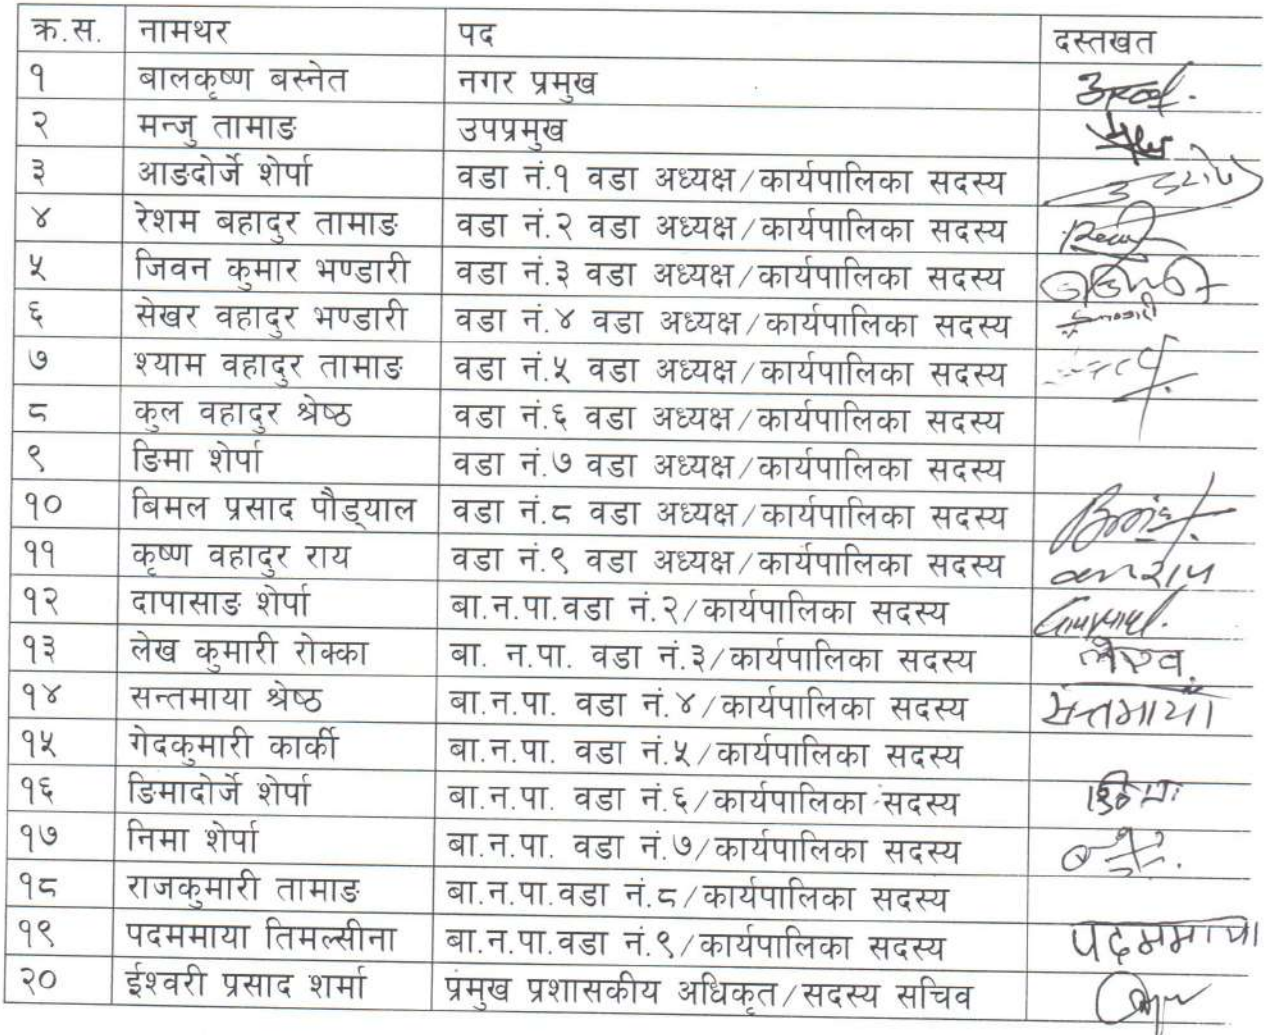 क्र.स. नामथर पद दस्तखत
१ बालकृष्ण बस्नेत नगर प्रमुख
२ मन्जु तामाङ उपप्रमुख
३ आङदोर्जे शेर्पा वडा नं.१ वडा अध्यक्ष/कार्यपालिका सदस्य
४ रेशम बहादुर तामाङ वडा नं.२ वडा अध्यक्ष/कार्यपालिका सदस्य
५ जिवन कुमार भण्डारी वडा नं.३ वडा अध्यक्ष/कार्यपालिका सदस्य
६ सेखर वहादुर भण्डारी वडा नं.४ वडा अध्यक्ष/कार्यपालिका सदस्य
७ श्याम वहादुर तामाङ वडा नं.५ वडा अध्यक्ष/कार्यपालिका सदस्य
८ कुल वहादुर श्रेष्ठ वडा नं.६ वडा अध्यक्ष/कार्यपालिका सदस्य
९ ङिमा शेर्पा वडा नं.७ वडा अध्यक्ष/कार्यपालिका सदस्य
१० बिमल प्रसाद पौड्याल वडा नं.८ वडा अध्यक्ष/कार्यपालिका सदस्य
११ कृष्ण वहादुर राय वडा नं.९ वडा अध्यक्ष/कार्यपालिका सदस्य
१२ दापासाङ शेर्पा बा.न.पा.वडा नं.२/कार्यपालिका सदस्य
१३ लेख कुमारी रोक्का बा. न.पा. वडा नं.३/कार्यपालिका सदस्य
१४ सन्तमाया श्रेष्ठ बा.न.पा. वडा नं.४/कार्यपालिका सदस्य सन्तमाया
१५ गेदकुमारी कार्की बा.न.पा. वडा नं.५/कार्यपालिका सदस्य
१६ ङिमादोर्जे शेर्पा बा.न.पा. वडा नं.६/कार्यपालिका सदस्य
१७ निमा शेर्पा बा.न.पा. वडा नं.७/कार्यपालिका सदस्य
१८ राजकुमारी तामाङ बा.न.पा.वडा नं.८/कार्यपालिका सदस्य
१९ पदममाया तिमल्सीना बा.न.पा.वडा नं.९/कार्यपालिका सदस्य पदममाया
२० ईश्वरी प्रसाद शर्मा प्रमुख प्रशासकीय अधिकृत/सदस्य सचिव